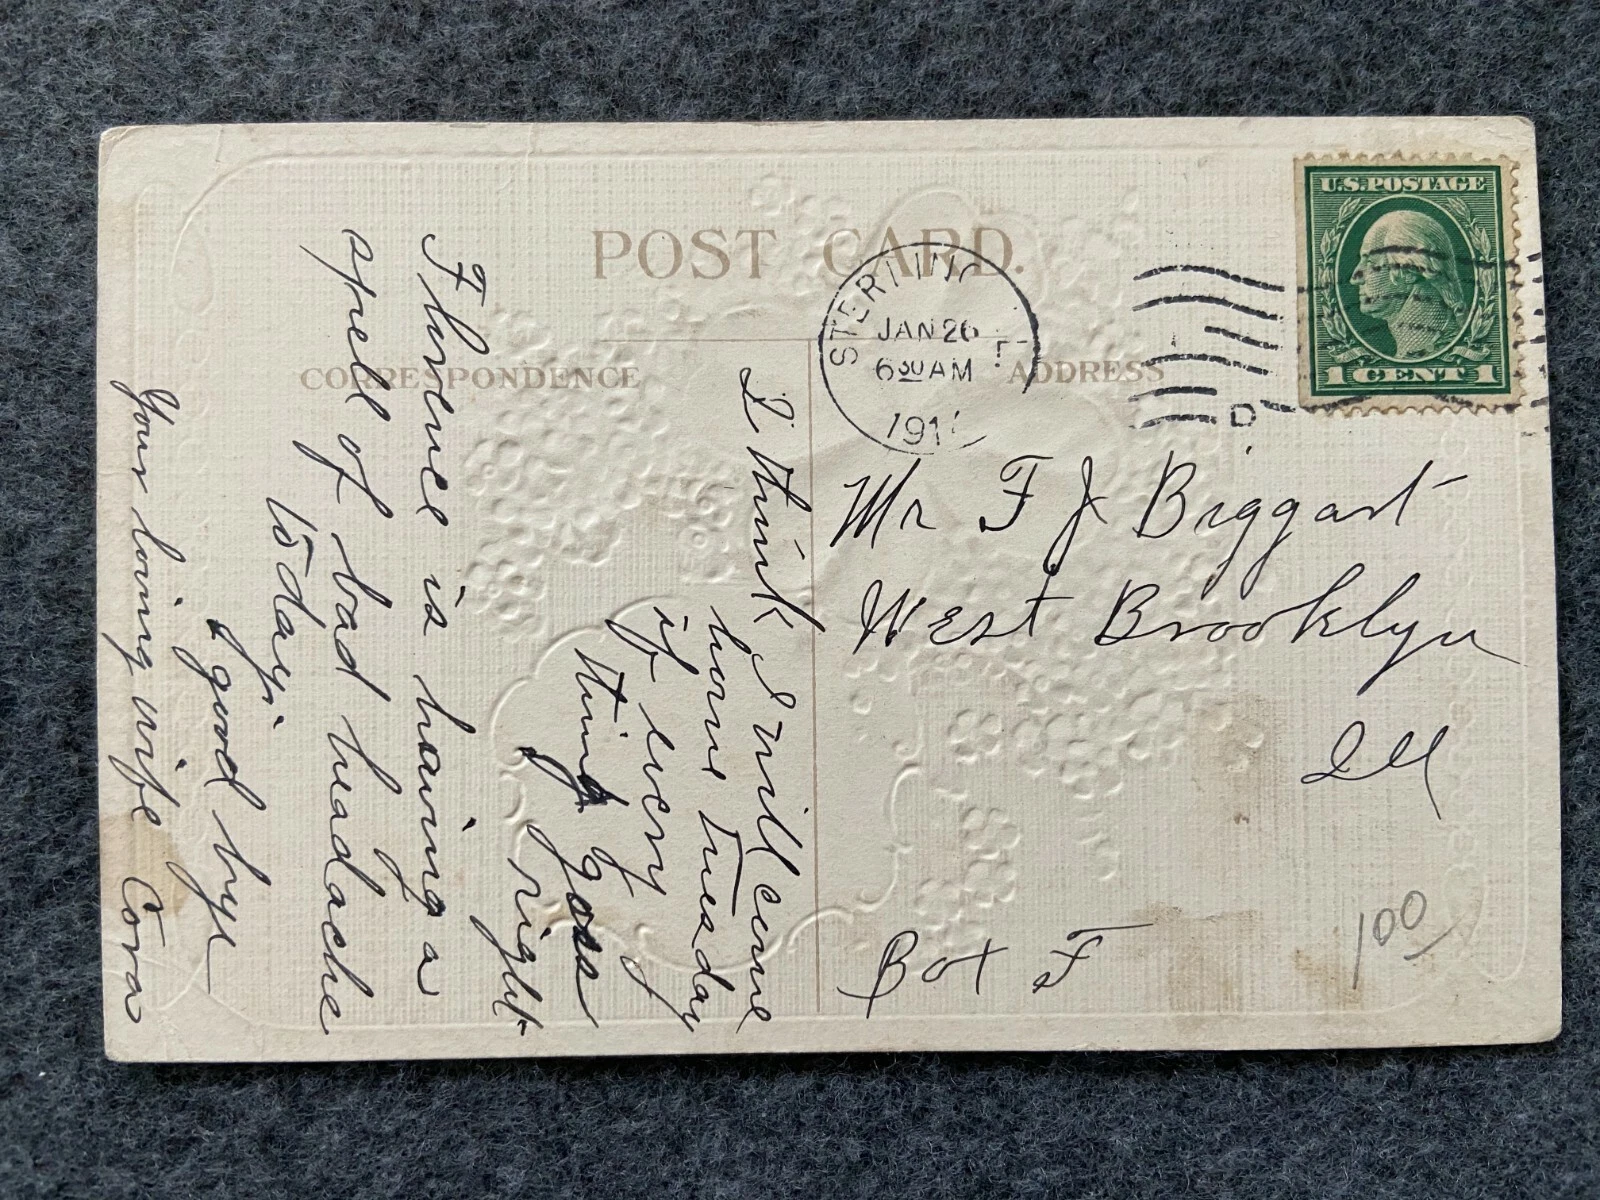 POST CARD.
CORRESPONDENCE
ADDRESS
U.S. POSTAGE
1 CENT 1
STERLING
JAN 26
6 30 AM
191
D
Mr F J Biggart
West Brooklyn
Ill
Box F
100
I think I will come
home Tuesday
if every
thing goes
right.
Florence is having a
spell of bad headache
to day.
good bye
Your loving wife Cora